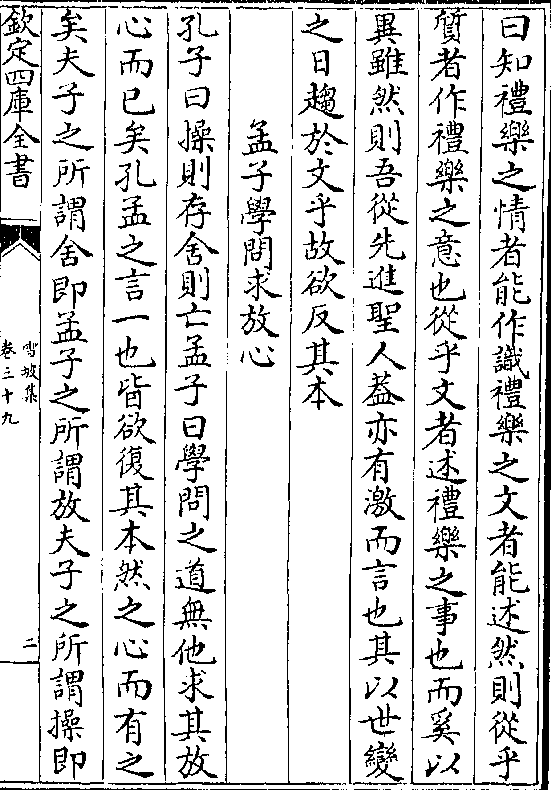 曰知禮樂之情者能作識禮樂之文者能述然則從乎
質者作禮樂之意也從乎文者述禮樂之事也而奚以
異雖然則吾從先進聖人葢亦有激而言也其以世變
之日趨於文乎故欲反其本
孟子學問求放心
孔子曰操則存舍則亡孟子曰學問之道無他求其放
心而已矣孔孟之言一也皆欲復其本然之心而有之
矣夫子之所謂舍即孟子之所謂放夫子之所謂操即
欽定四庫全書
雪坡集
卷三十九
二